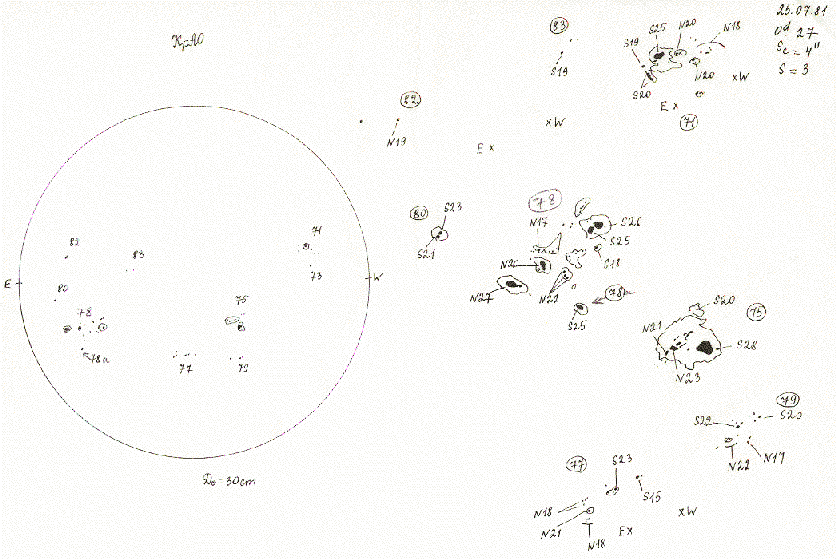 25.07.81
27
S = 3
КрАО
83
S25
N20
N18
S19
S19
S20
N20
xW
E x
71
82
N13
xW
E x
80
S23
S21
78
N17
S26
S25
S18
N27
N22
78a
S25
71
82
83
E
W
73
80
75
78
78a
77
79
S20
75
N21
S28
N23
79
S20
N22
N17
77
S23
S15
N18
N21
N18
E x
xW
D₀ - 30cm